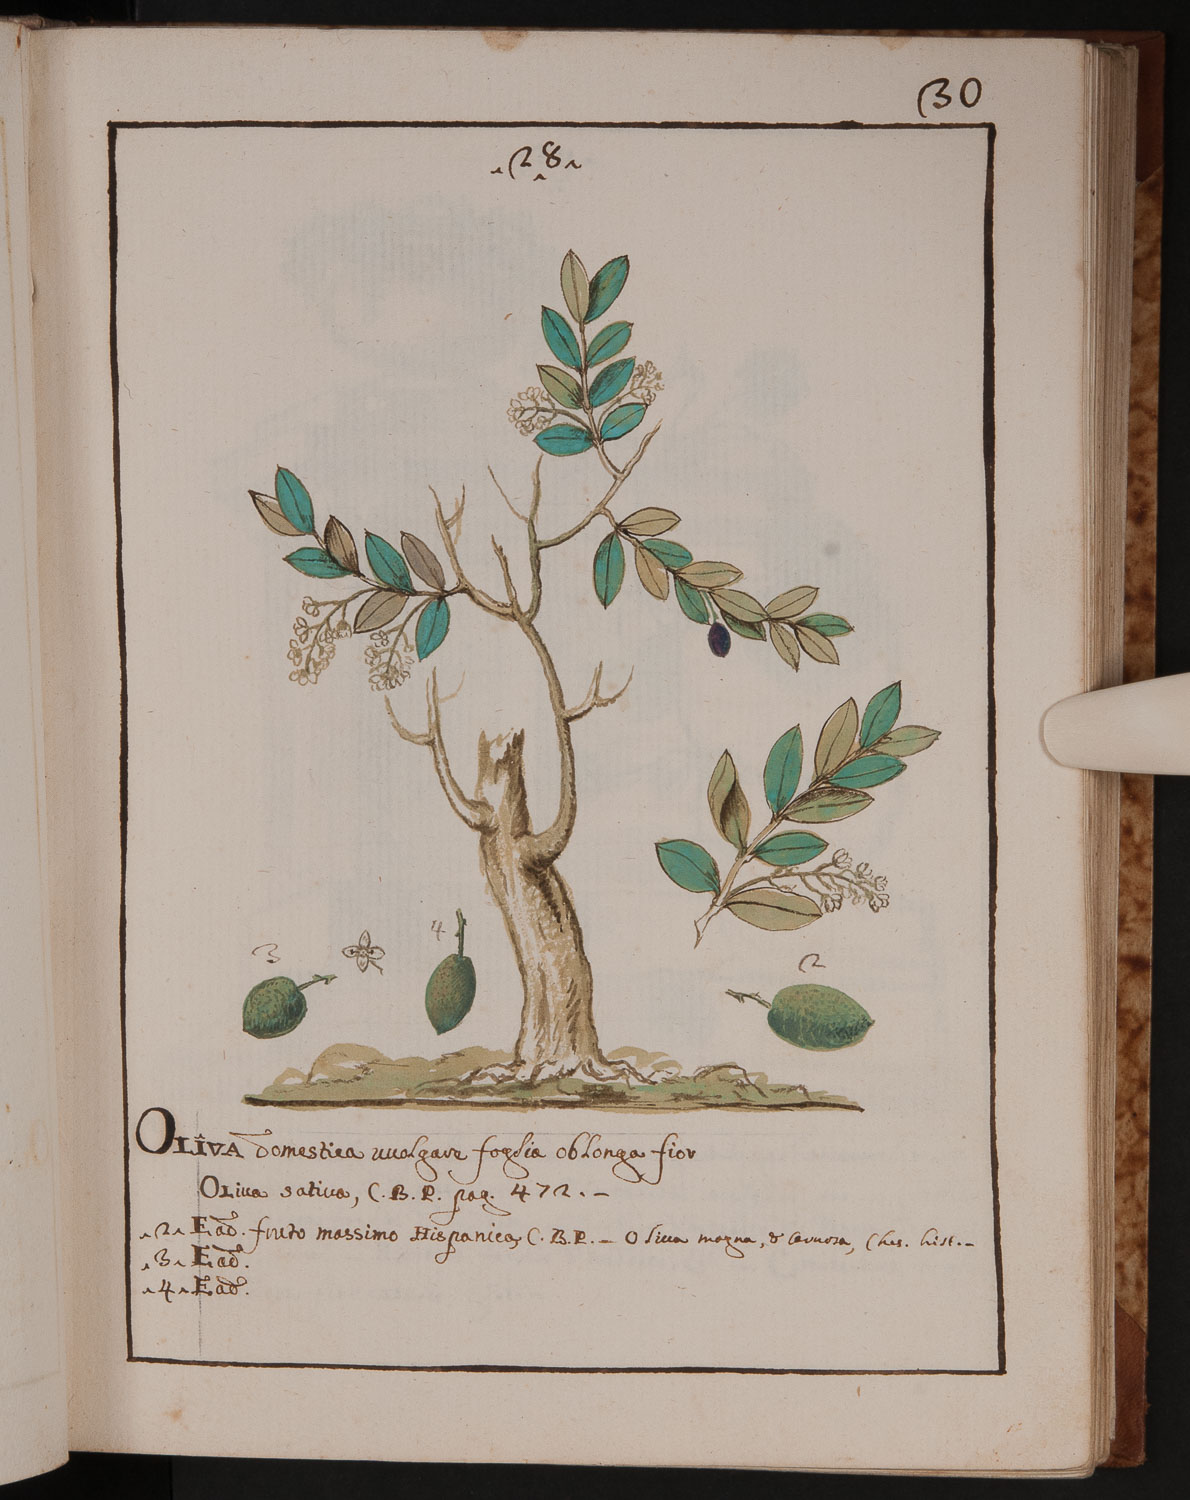 30
28
4
3
2
OLIVA domestica uuolgare foglia oblonga fior
Oliua satiua, C.B.P. pag. 472.
2 Ead. fruto massimo Hispanica, C.B.P. Oliua magna, & carnosa, Ches. hist.
3 Ead.
4 Ead.